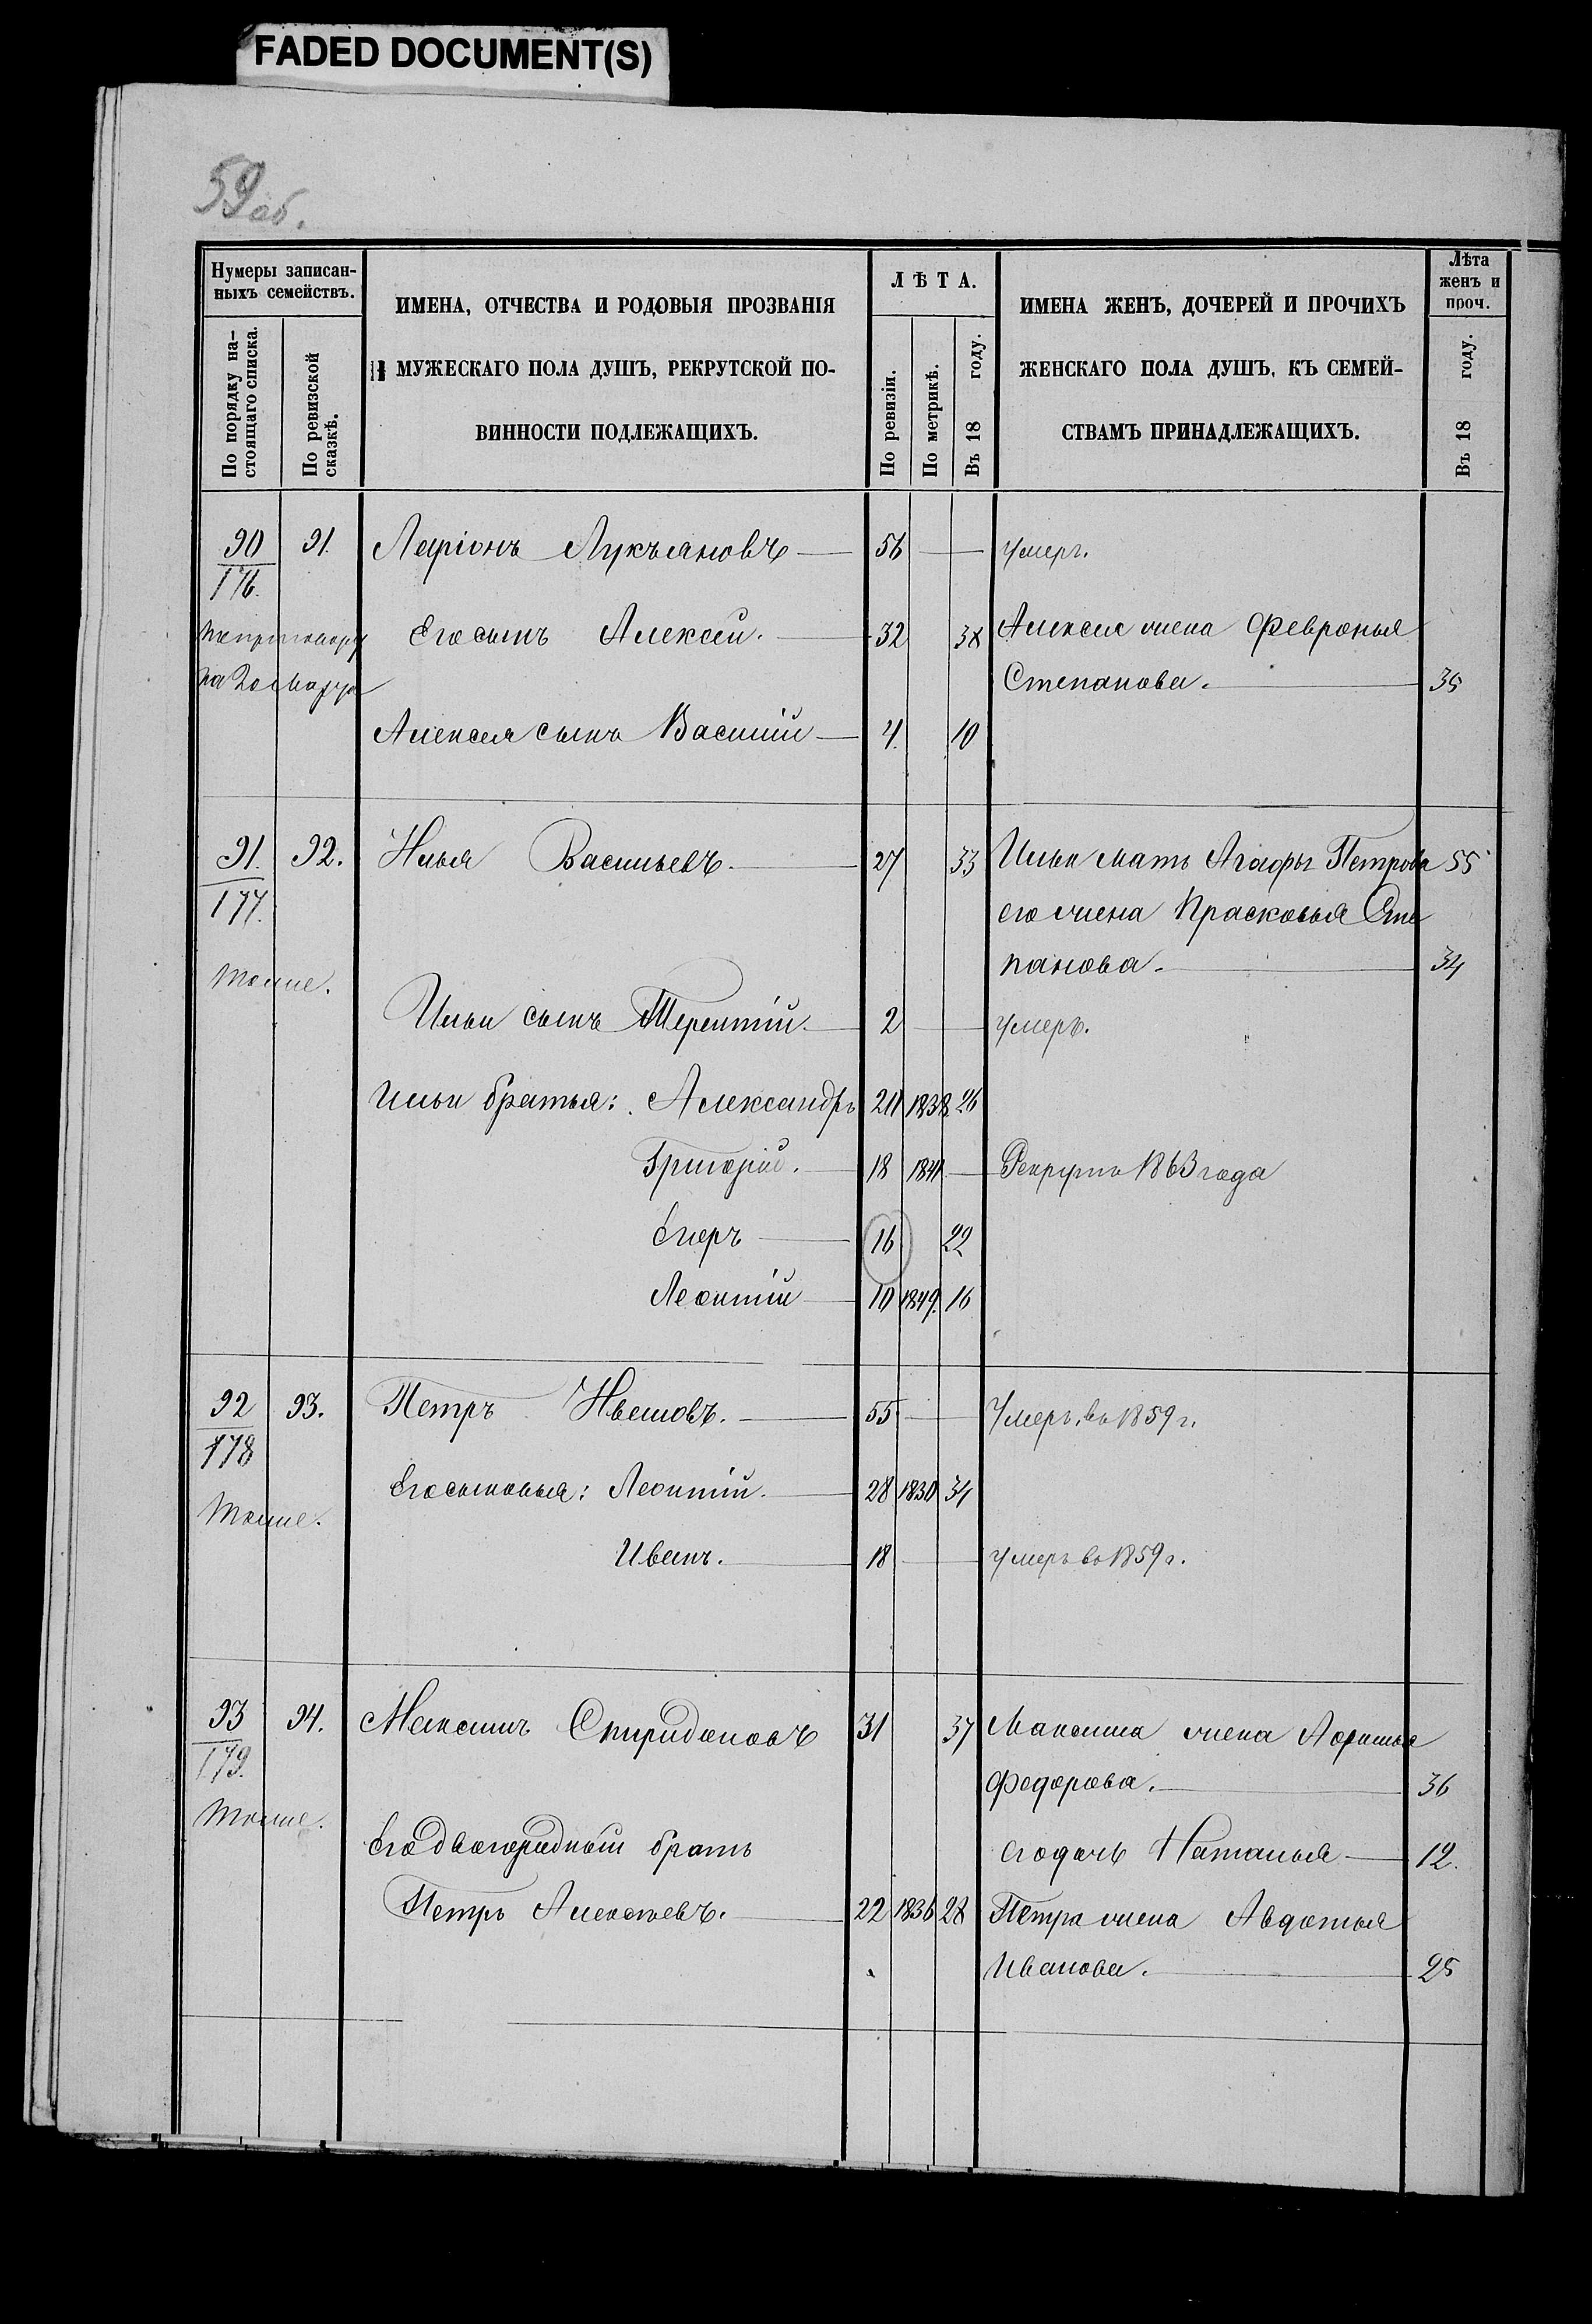 FADED DOCUMENT(S)
59 об.
Нумеры записан-
ныхъ семействъ.
По порядку на-
стоящаго списка.
По ревизской
сказкѣ.
ИМЕНА, ОТЧЕСТВА И РОДОВЫЯ ПРОЗВАНІЯ
МУЖЕСКАГО ПОЛА ДУШЪ, РЕКРУТСКОЙ ПО-
ВИННОСТИ ПОДЛЕЖАЩИХЪ.
ЛѢТА.
По ревизіи.
По метрикѣ.
Въ 18 году.
ИМЕНА ЖЕНЪ, ДОЧЕРЕЙ И ПРОЧИХЪ
ЖЕНСКАГО ПОЛА ДУШЪ, КЪ СЕМЕЙ-
СТВАМЪ ПРИНАДЛЕЖАЩИХЪ.
Лѣта
женъ и
проч.
Въ 18 году.
90 91. Ларіонъ Лукъяновъ 56 умеръ.
176.
По приговору Его сынъ Алексѣй. 32 38 Алексѣя жена Февронья
на 20 Марта Степанова. 35
Алексѣя сынъ Василій 4. 10
91. 92. Илья Васильевъ. 27 33 Ильи мать Агафья Петрова 55
177. его жена Прасковья Сте
тоже. панова. 34
Ильи сынъ Терентій. 2 умеръ.
Ильи братья: Александръ 20 1838. 26
Григорій. 18 1841 Рекрутъ 1863 года
Егоръ 16 22
Леонтій 10 1849. 16
92 93. Петръ Ивановъ. 55 Умеръ въ 1859 г.
178
тоже. Его сыновья: Леонтій. 28 1830 34
Иванъ. 18 умеръ въ 1859 г.
93 94. Максимъ Спиридоновъ 31 37 Максима жена
179. Федорова. 36
тоже. Его двоюродный братъ его дочь Наталья 12.
Петръ Алексѣевъ. 22 1836 28 Петра жена Авдотья
Иванова. 25